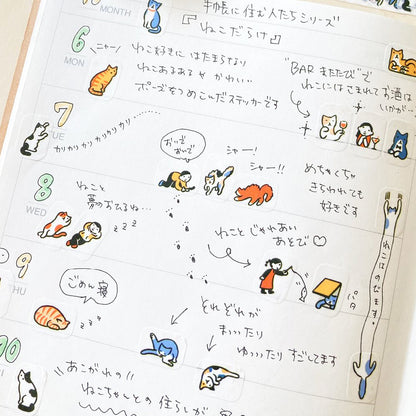 MONTH
手帳に住む人たちシリーズ
『ねこだらけ』
6
MON
ニャー
ねこ好きに はたまらない
ねこあるある や かわいい
ポーズをつめこんだステッカーです
"BAR またたび"で
ねこにはさまれてお酒は
いかが…?
7
UE
カリカリッカリカリカリ…
おいで
おいで
シャー!
シャー!!
めちゃくちゃ
きらわれても
好きです
8
WED
ねこと
夢のおひるね…
zzz
ねこと じゃれあい
あそび♡
ねこはのびます。
9
THU
ごめん寝
zzz
パタ
それぞれが
まったり
ゆったり すごしてます
10
あこがれの!!
ねこちゃんとの 住らしが